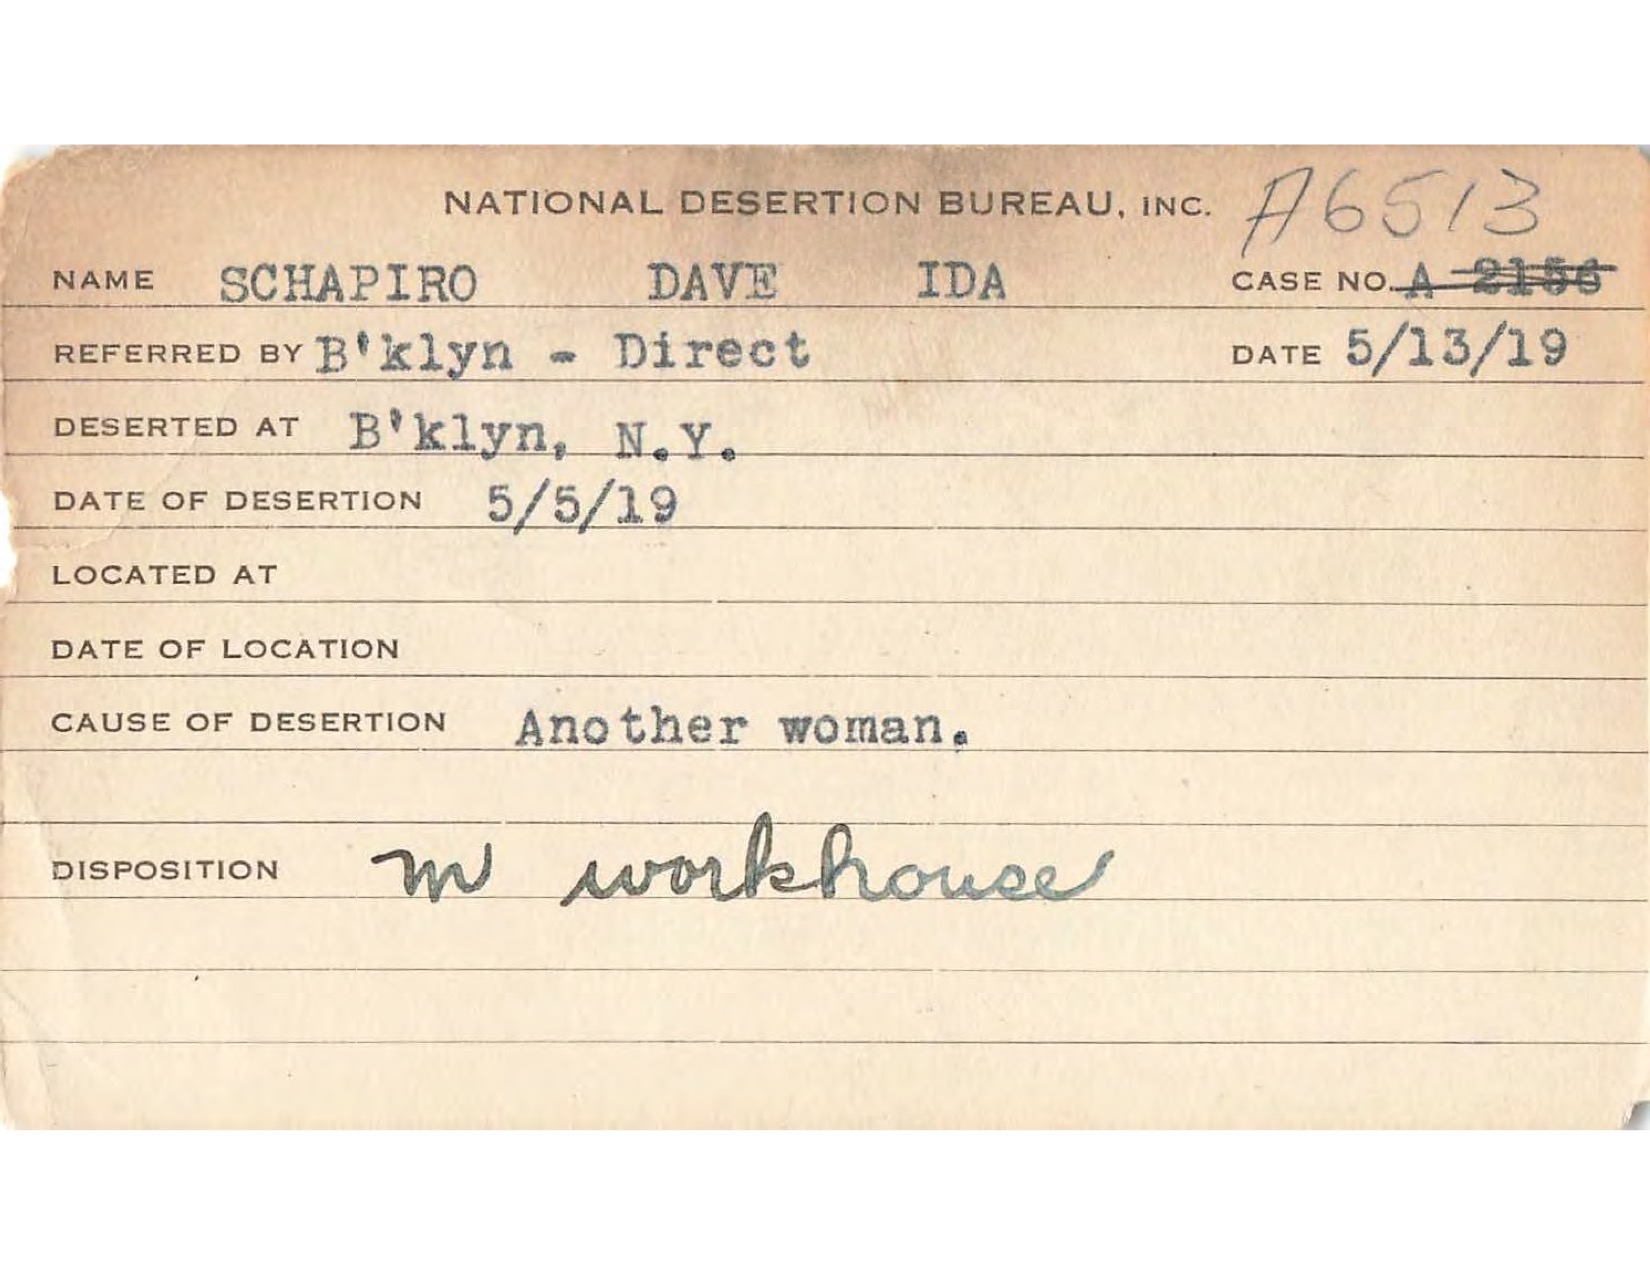 NATIONAL DESERTION BUREAU, INC. A6513
NAME SCHAPIRO DAVE IDA CASE NO. A 2156
REFERRED BY B'klyn - Direct DATE 5/13/19
DESERTED AT B'klyn, N.Y.
DATE OF DESERTION 5/5/19
LOCATED AT
DATE OF LOCATION
CAUSE OF DESERTION Another woman.
DISPOSITION M workhouse